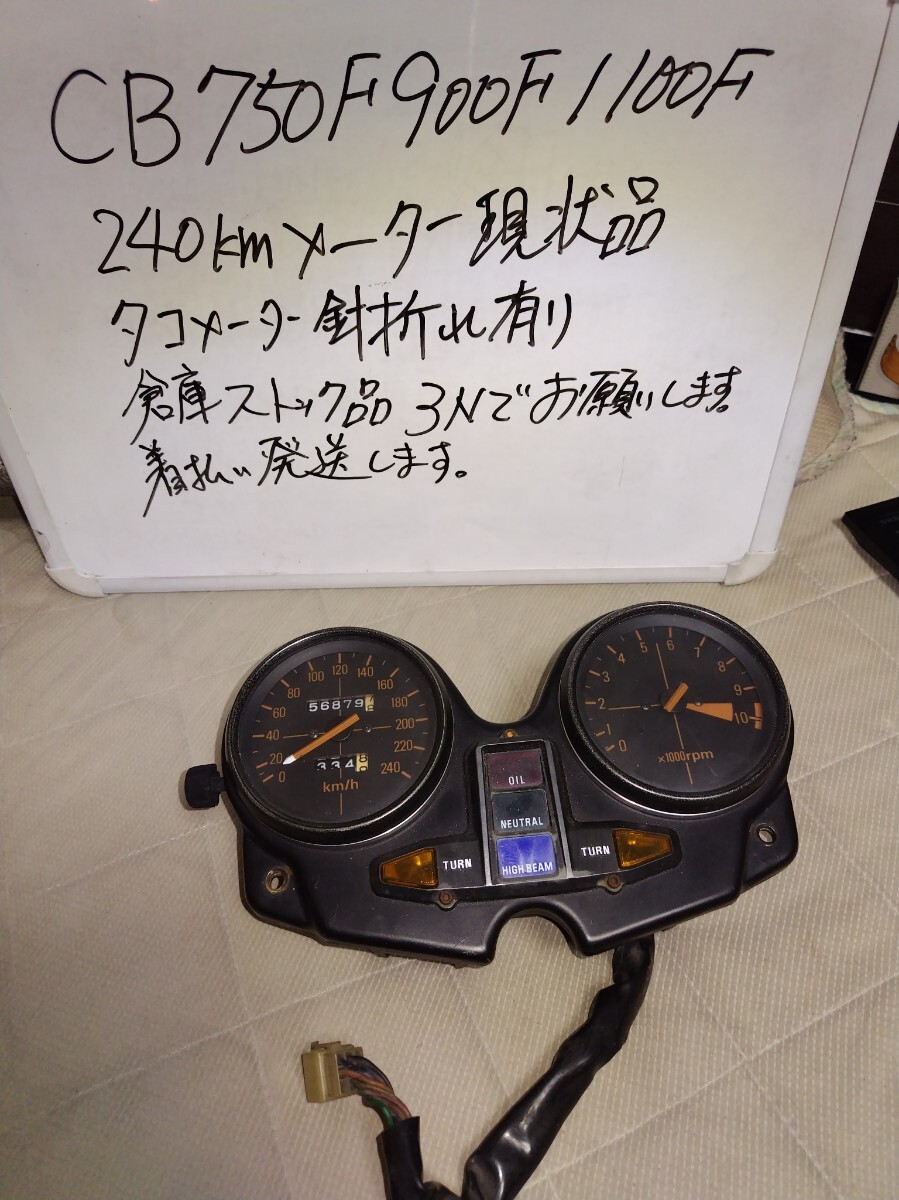 CB750F900F1100F
240kmメーター現状品
タコメーター針折れ有り
倉庫ストック品 3Nでお願いします。
着払い発送します。
0 20 40 60 80 100 120 140 160 180 200 220 240
56879
334
km/h
0 1 2 3 4 5 6 7 8 9 10
×1000rpm
OIL
NEUTRAL
HIGH BEAM
TURN
TURN